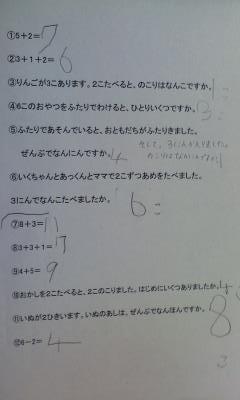 ①5+2=7
②3+1+2=6
③りんごが3こあります。2こたべると、のこりはなんこですか。1こ
④6このおやつをふたりでわけると、ひとりいくつですか。3こ
⑤ふたりであそんでいると、おともだちがふたりきました。
ぜんぶでなんにんですか。4
⑥いくちゃんとあっくんとママで2こずつあめをたべました。
3にんでなんこたべましたか。6こ
⑦8+3=11
⑧3+3+1=7
⑨4+5=9
⑩おかしを2こたべると、2このこりました。はじめにいくつありましたか。4こ
⑪いぬが2ひきいます。いぬのあしは、ぜんぶでなんぼんですか。8
⑫6-2=4
3